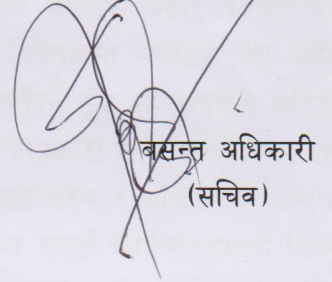 बसन्त अधिकारी
(सचिव)